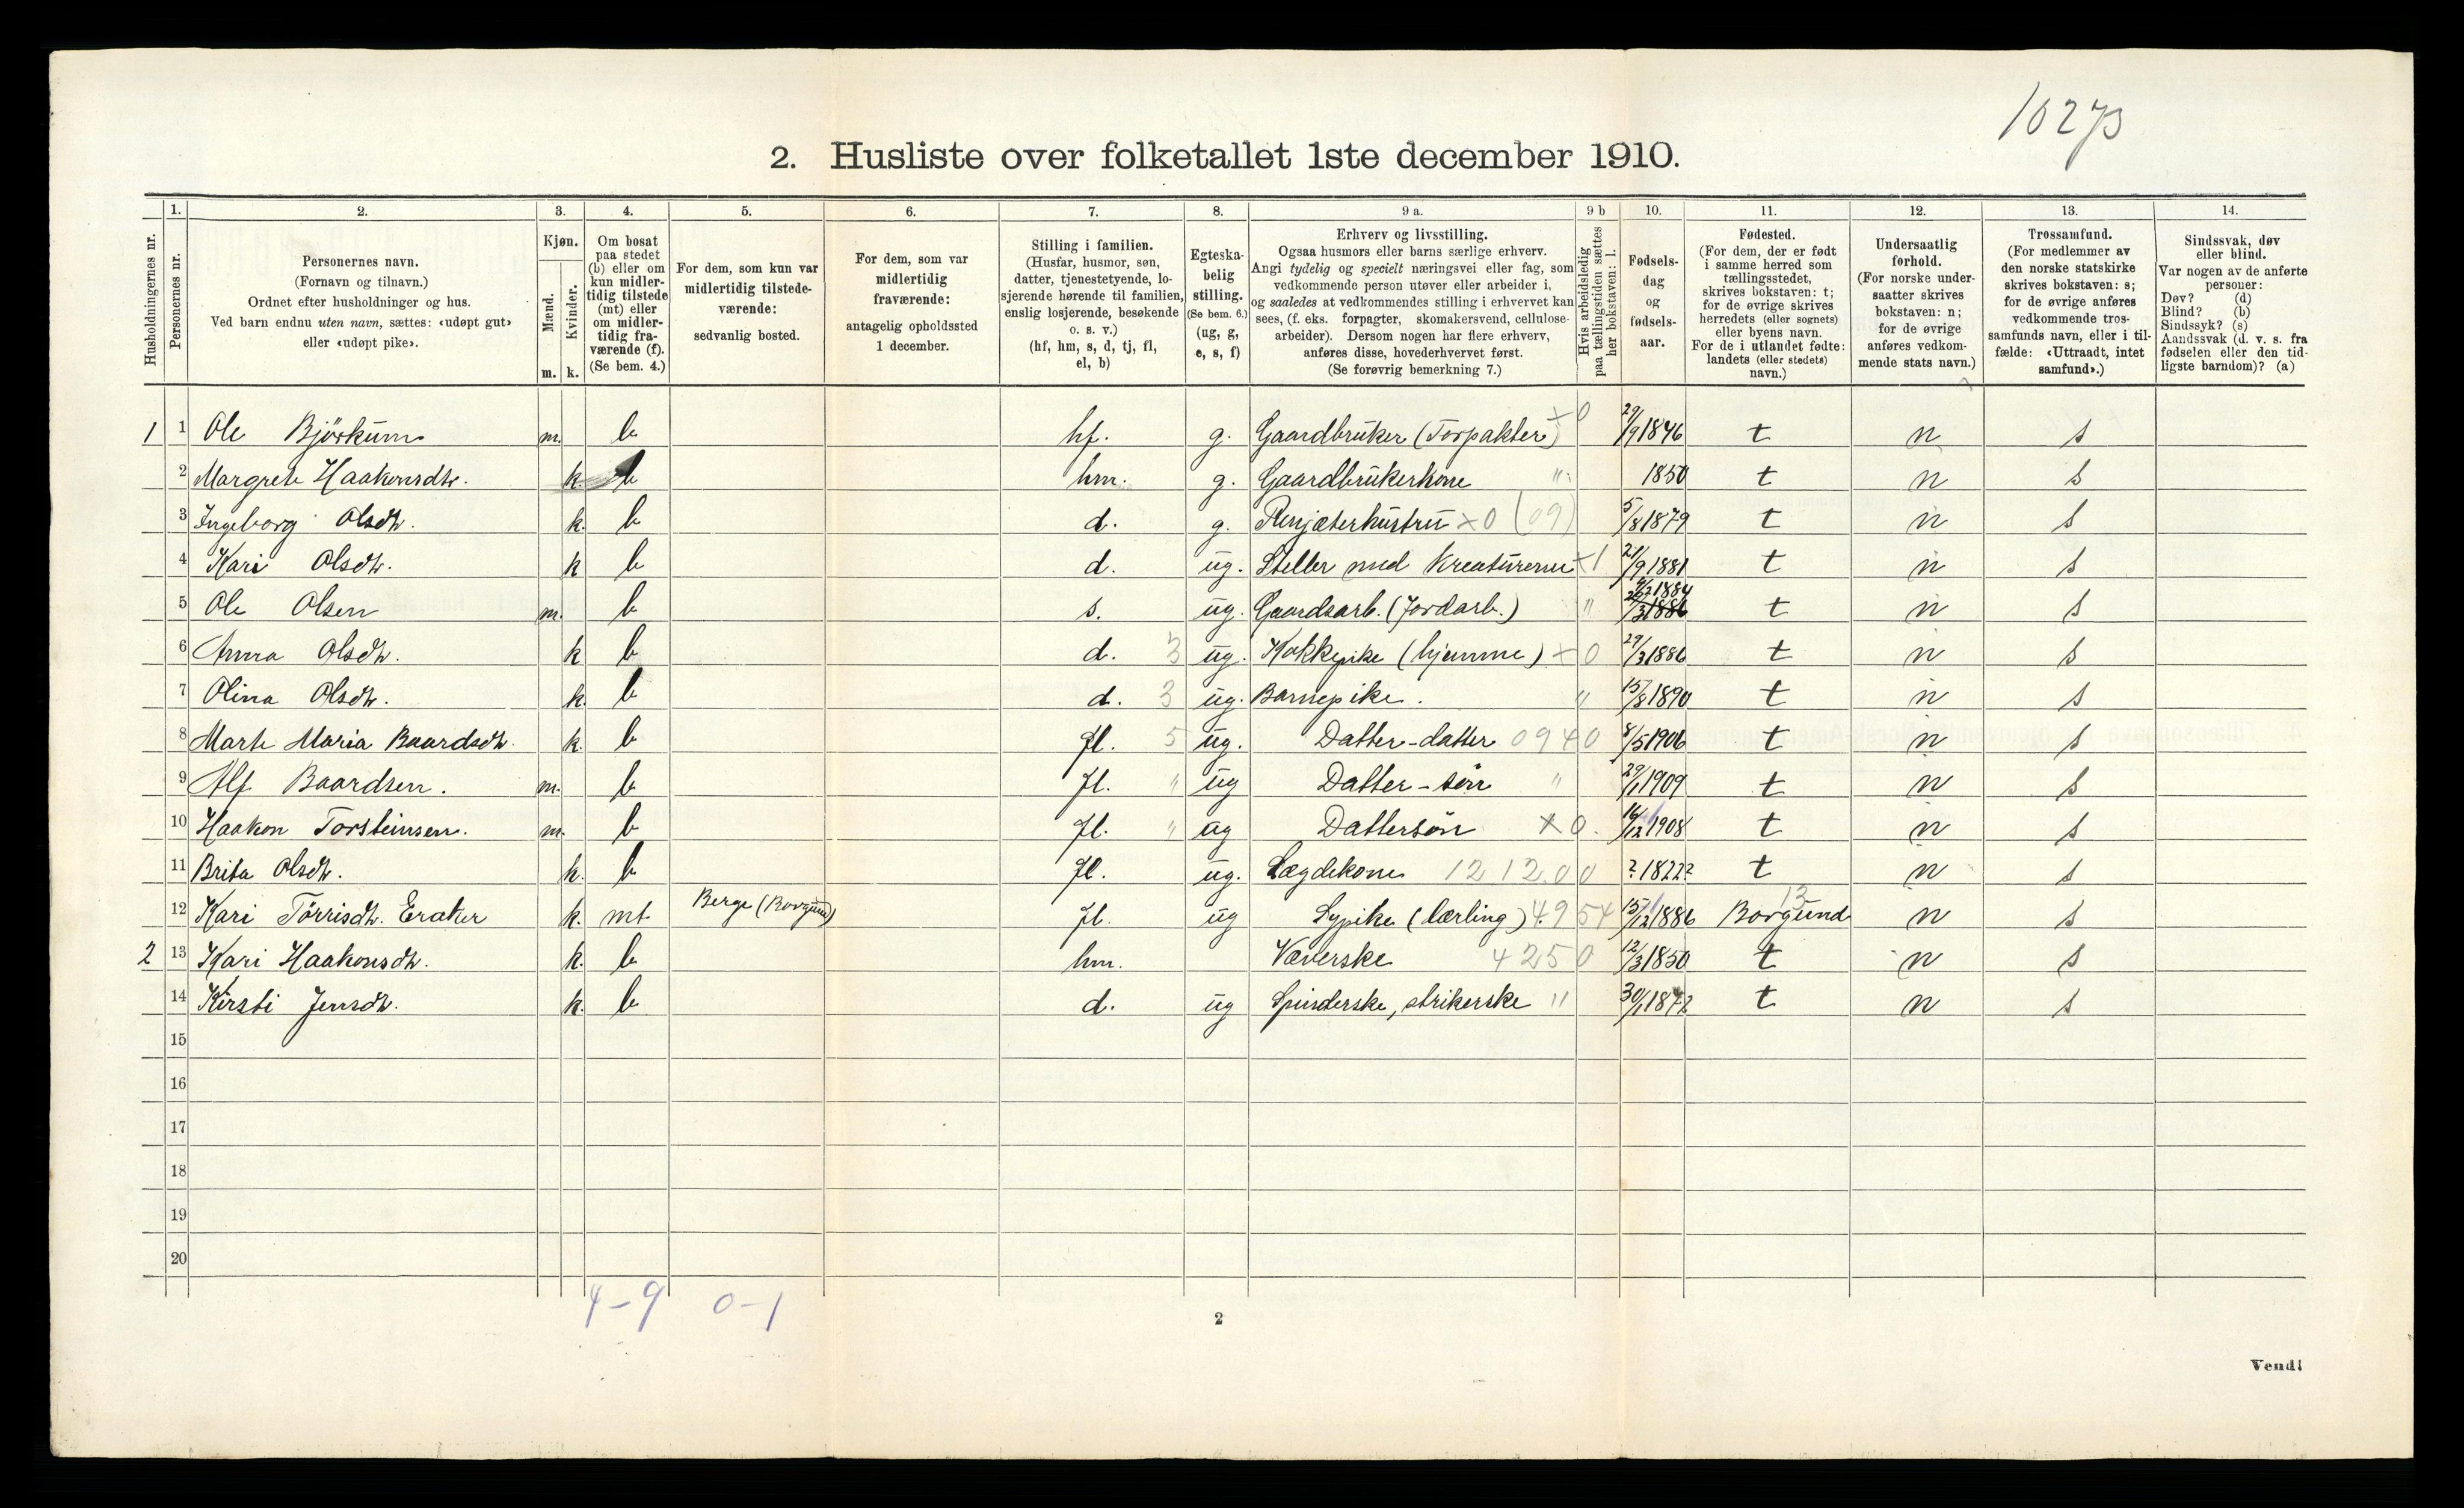 10273
2. Husliste over folketallet 1ste december 1910.
Husholdningernes nr.
1. Personernes nr.
2. Personernes navn. (Fornavn og tilnavn.) Ordnet efter husholdninger og hus. Ved barn endnu uten navn, sættes: «udøpt gut» eller «udøpt pike».
3. Kjøn. Mænd. m. Kvinder. k.
4. Om bosat paa stedet (b) eller om kun midlertidig tilstede (mt) eller om midlertidig fraværende (f). (Se bem. 4.)
5. For dem, som kun var midlertidig tilstedeværende: sedvanlig bosted.
6. For dem, som var midlertidig fraværende: antagelig opholdssted 1 december.
7. Stilling i familien. (Husfar, husmor, søn, datter, tjenestetyende, losjerende hørende til familien, enslig losjerende, besøkende o. s. v.) (hf, hm, s, d, tj, fl, el, b)
8. Egteskabelig stilling. (Se bem. 6.) (ug, g, e, s, f)
9 a. Erhverv og livsstilling. Ogsaa husmors eller barns særlige erhverv. Angi tydelig og specielt næringsvei eller fag, som vedkommende person utøver eller arbeider i, og saaledes at vedkommendes stilling i erhvervet kan sees, (f. eks. forpagter, skomakersvend, cellulosearbeider). Dersom nogen har flere erhverv, anføres disse, hovederhvervet først. (Se forøvrig bemerkning 7.)
9 b Hvis arbeidsledig paa tællingstiden sættes her bokstaven: l.
10. Fødselsdag og fødselsaar.
11. Fødested. (For dem, der er født i samme herred som tællingsstedet, skrives bokstaven: t; for de øvrige skrives herredets (eller sognets) eller byens navn. For de i utlandet fødte: landets (eller stedets) navn.)
12. Undersaatlig forhold. (For norske undersaatter skrives bokstaven: n; for de øvrige anføres vedkommende stats navn.)
13. Trossamfund. (For medlemmer av den norske statskirke skrives bokstaven: s; for de øvrige anføres vedkommende trossamfunds navn, eller i tilfælde: «Uttraadt, intet samfund».)
14. Sindssvak, døv eller blind. Var nogen av de anførte personer: Døv? (d) Blind? (b) Sindssyk? (s) Aandssvak (d. v. s. fra fødselen eller den tidligste barndom)? (a)
1 1 Ole Bjørkum m. b hf. g. Gaardbruker (Forpakter) x0 29/9 1846 t n s
2 Margrete Haakonsdtr. k. b hm. g. Gaardbrukerkone " 1850 t n s
3 Ingeborg Olsdtr. k. b d. g. Renjæterhustru x0 (09) 5/8 1879 t n s
4 Kari Olsdtr. k b d. ug. Steller med Kreaturerne x1 21/9 1881 t n s
5 Ole Olsen m. b s. ug. Gaardsarb. (Jordarb.) " 1884 t n s
6 Anna Olsdtr. k b d. 3 ug. Kokkepike (hjemme) x0 29/3 1886 t n s
7 Olina Olsdtr. k. b d. 3 ug. Barnepike. " 15/8 1890 t n s
8 Marte Maria Baardsdtr. k. b fl. 5 ug. Datter-datter 0940 8/5 1906 t n s
9 Alf Baardsen. m. b fl. " ug Datter-søn " 29/1 1909 t n s
10 Haakon Torsteinsen. m. b fl. " ug Dattersøn x0. 16/12 1908 t n s
11 Brita Olsdtr. k. b fl. ug. Lægdekone 1212.00 ? 1822? t n s
12 Kari Tørrisdtr. Eraker k. mt Berge (Borgund) fl. ug Sypike (lærling) 4954 15/12 1886 Borgund 13 n s
2 13 Kari Haakonsdtr. k. b hm. Væverske 4250 12/3 1850 t n s
14 Kirsti Jensdtr. k. b d. ug Spinderske, strikerske " 30/1 1872 t n s
15
16
17
18
19
20
4-9 0-1
2
Vend!